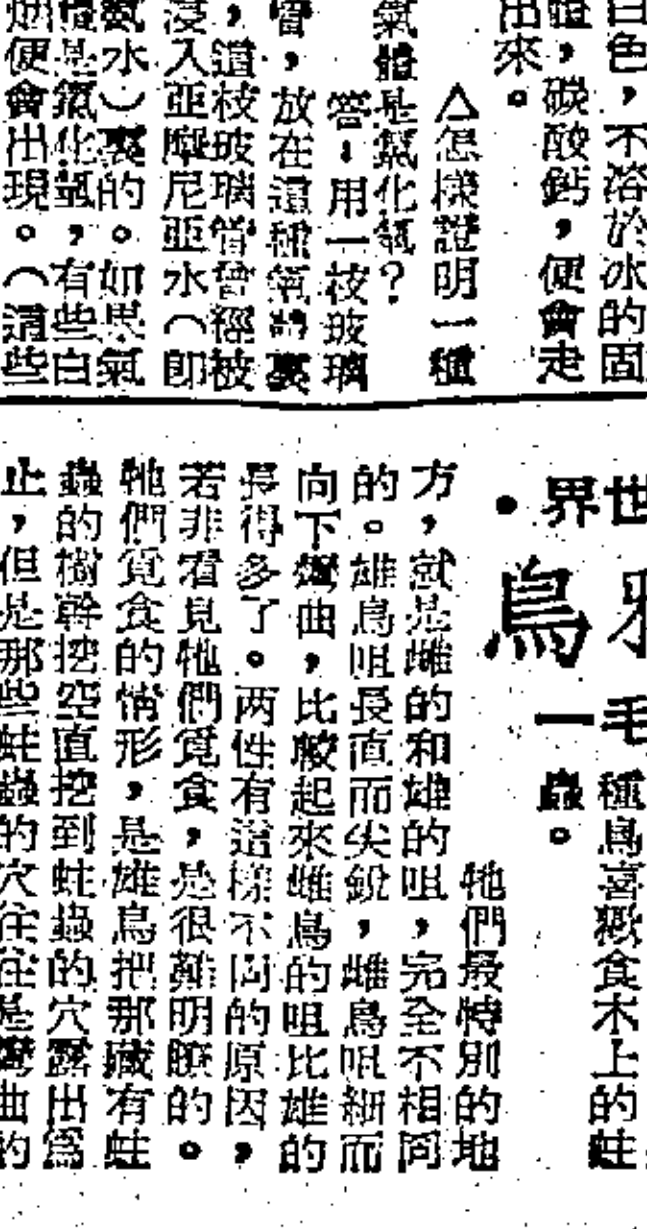 白色，不溶於水的固
體，碳酸鈣，便會走
出來。
△怎樣證明一種
氣體是氯化氫？
答：用一枝玻璃
管，放在這種氣體裏
，這枝玻璃管曾經被
浸入亞摩尼亞水（卽
氨水）裏的。如果氣
體是氯化氫，有些白
烟便會出現。（這些
世
界
毛
鳥
一
種鳥喜歡食木上的蛀
蟲。
牠們最特別的地
方，就是雌的和雄的咀，完全不相同
的。雄鳥咀長直而尖銳，雌鳥咀細而
向下彎曲，比較起來雌鳥的咀比雄的
長得多了。两性有這樣不同的原因，
若非看見牠們覓食，是很難明瞭的。
牠們覓食的情形，是雄鳥把那藏有蛀
蟲的樹幹挖空直挖到蛀蟲的穴露出爲
止，但是那些蛀蟲的穴往往是彎曲的